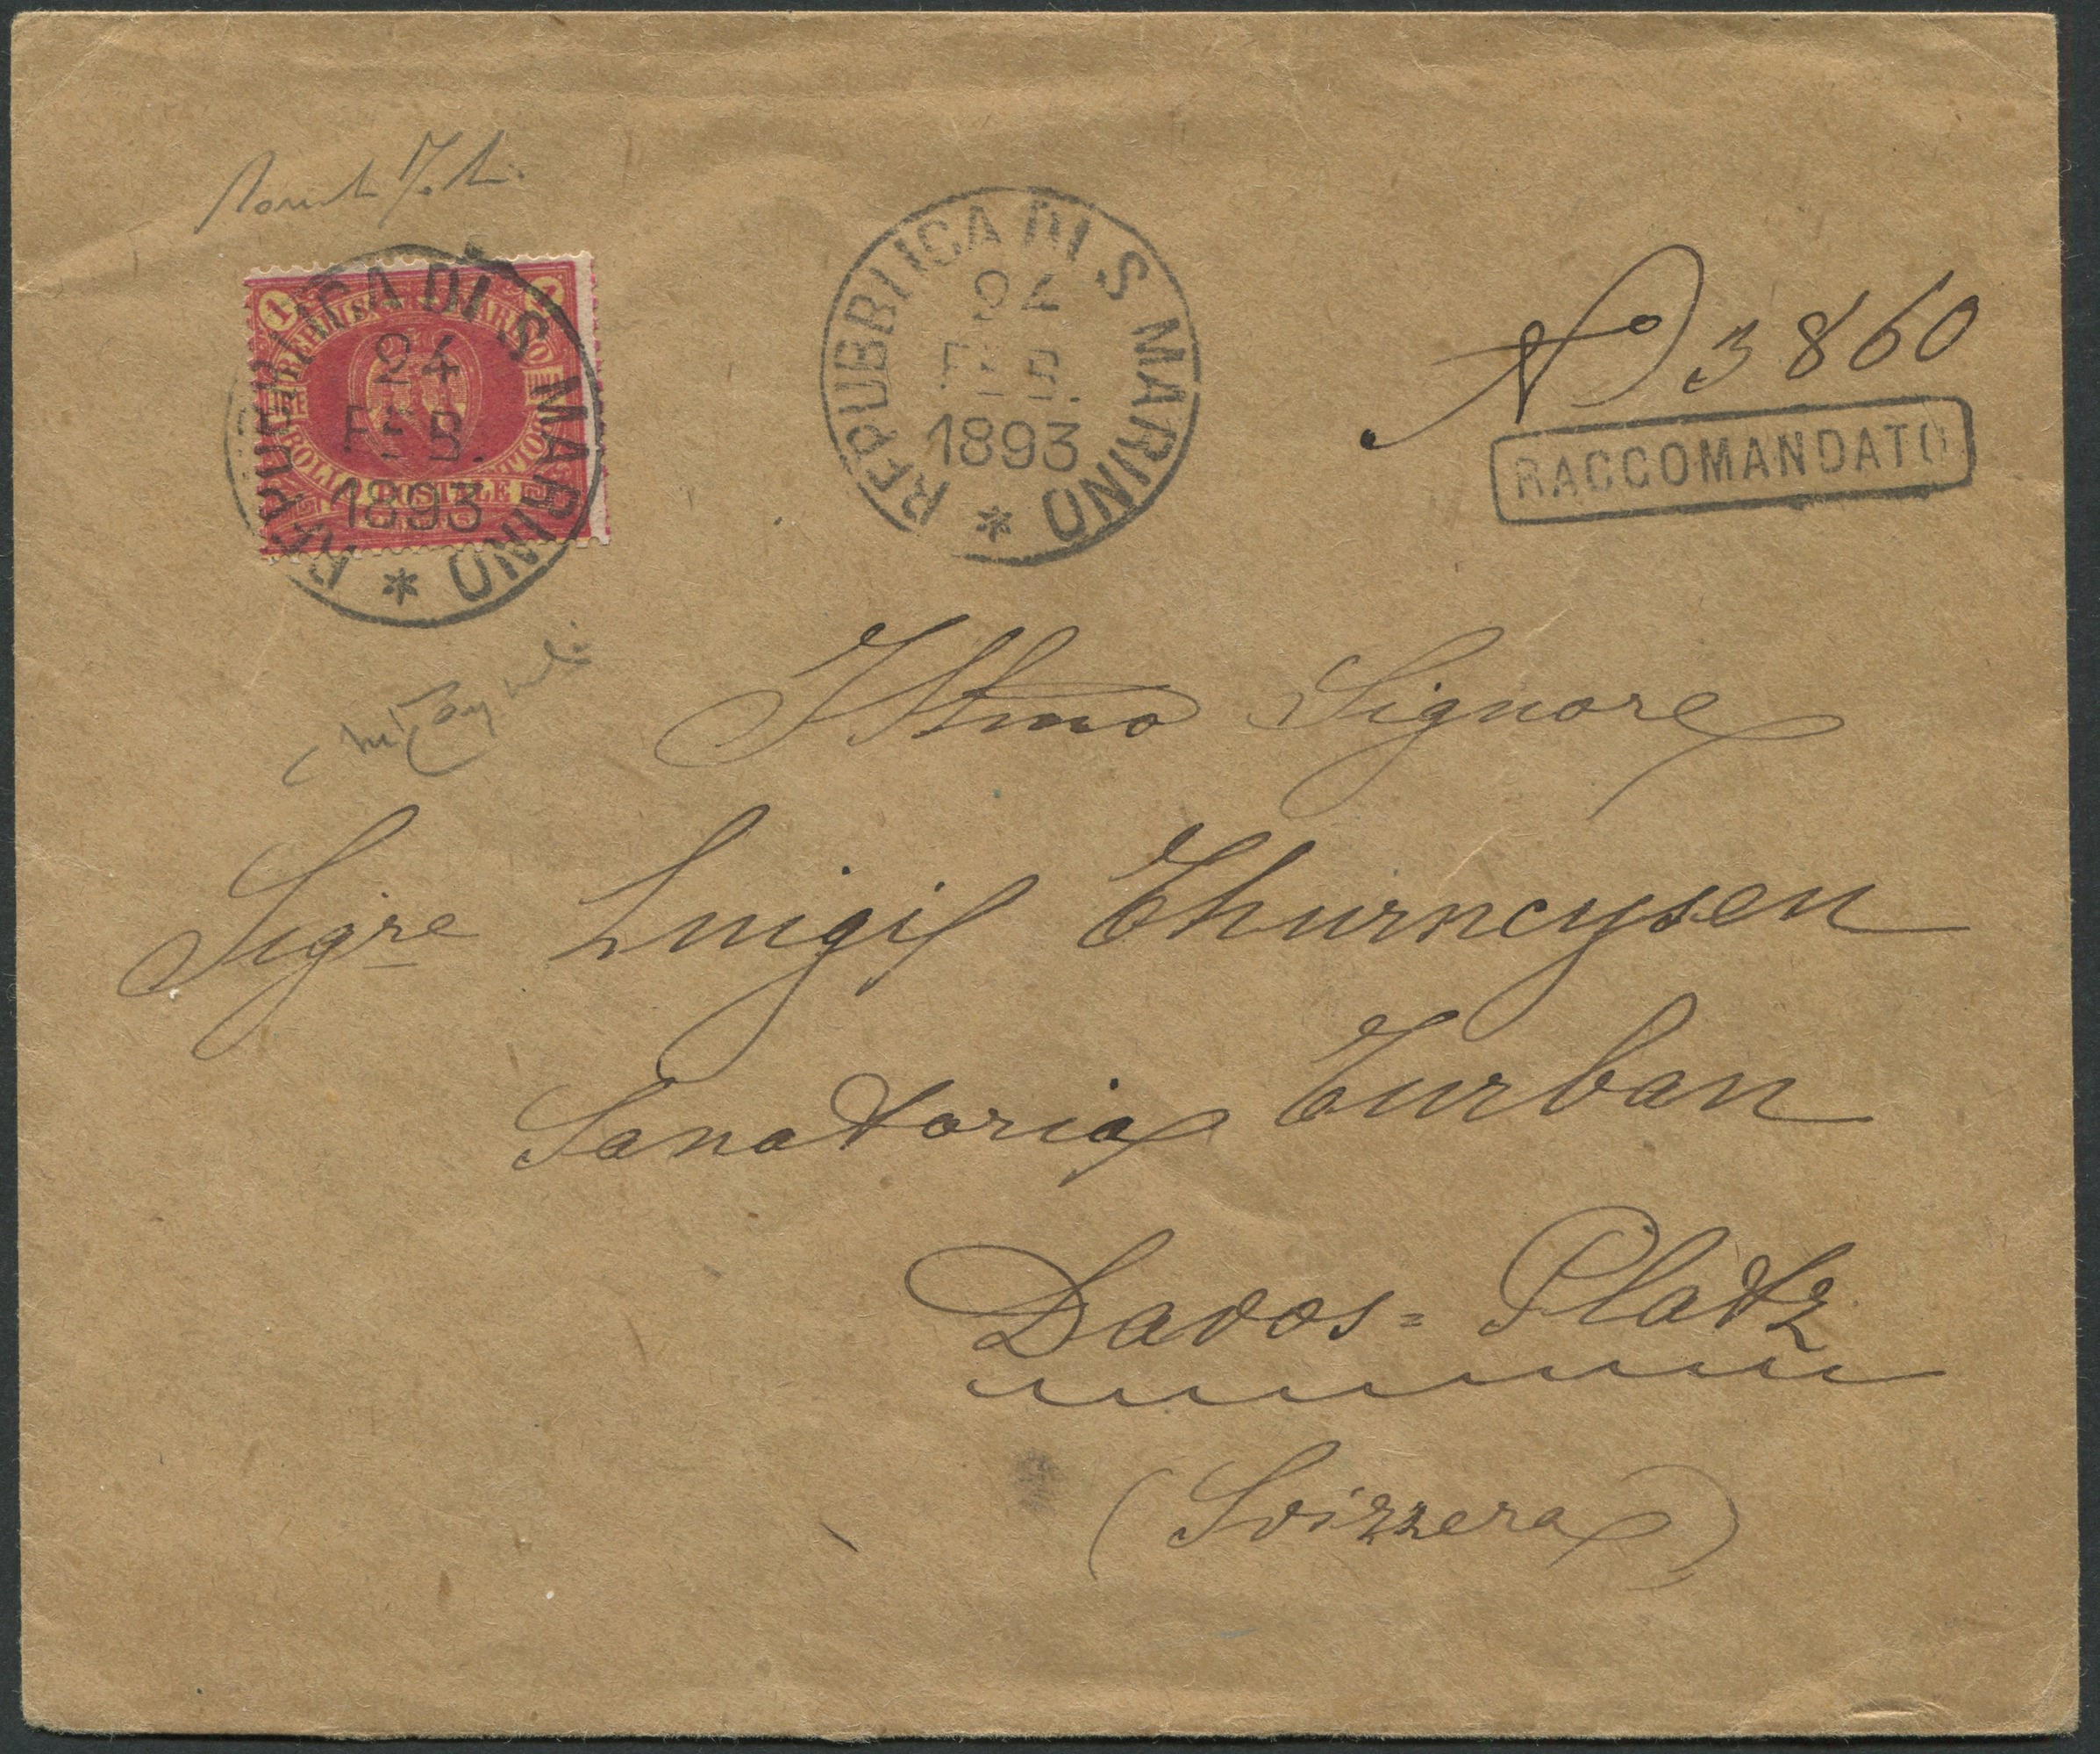 REPUBBLICA DI S. MARINO
24
FEB.
1893
1
1
BOLLO POSTALE
REPUBBLICA DI S. MARINO
24
FEB.
1893
No 3860
RACCOMANDATO
Illmo Signore
Sigre Luigi Thurneysen
Sanatoria Turban
Davos=Platz
(Svizzera)